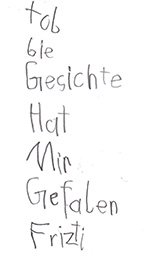 tob
bie
Gesichte
Hat
Mir
Gefalen
Frizti